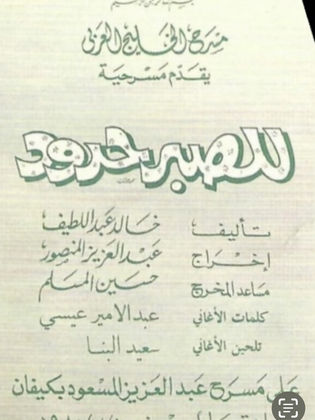 مسرح الخليج العربي
يقدم مسرحية
للصبر حدود
تأليف خالد عبد اللطيف
إخراج عبد العزيز المنصور
مساعد المخرج حسين المسلم
كلمات الأغاني عبد الامير عيسى
تلحين الأغاني سعيد البنا
على مسرح عبد العزيز المسعود بكيفان